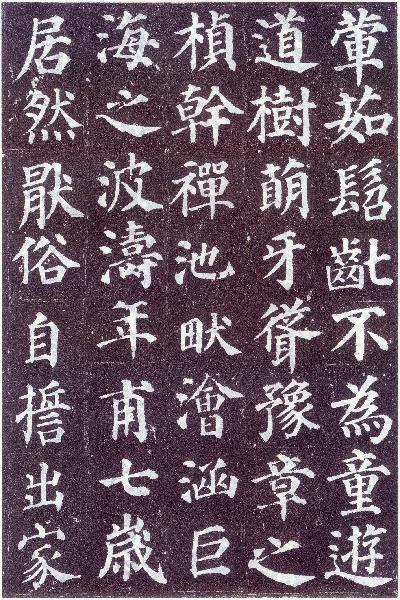 葷茹髫齔不為童遊
道樹萌牙聳豫章之
楨幹禪池畎澮涵巨
海之波濤年甫七歲
居然猒俗自誓出家